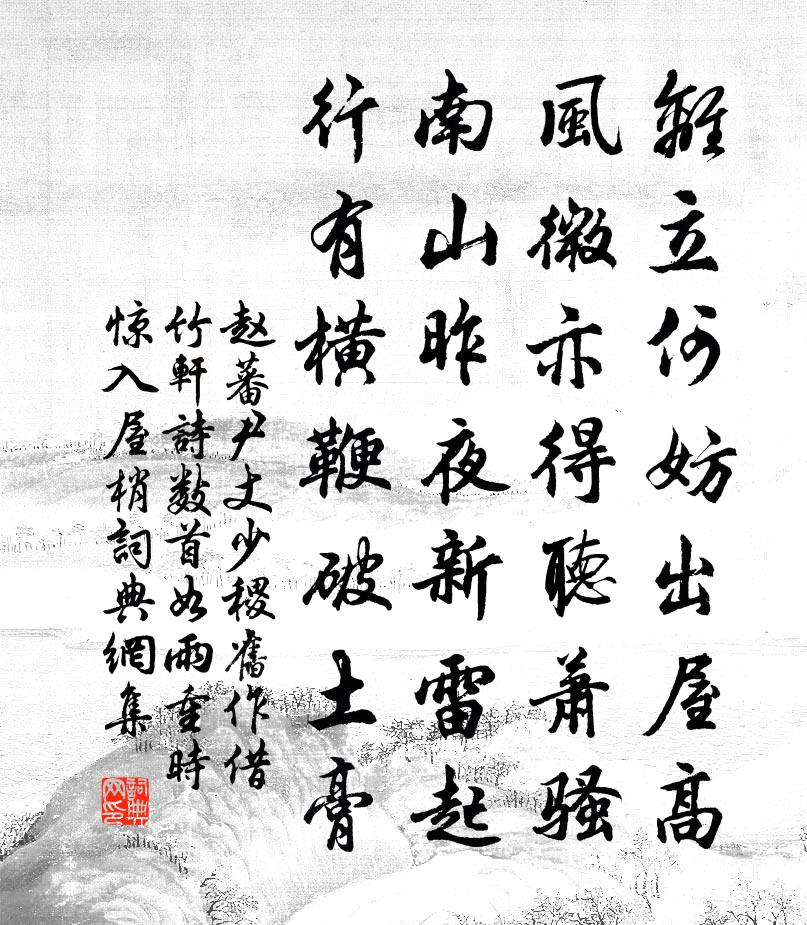 離立何妨出屋高
風微亦得聽蕭騷
南山昨夜新雷起
行有橫鞭破土膏
赵蕃尹丈少稷舊作借
竹軒詩数首如雨重時
惊入屋梢詞典網集
詞典网印